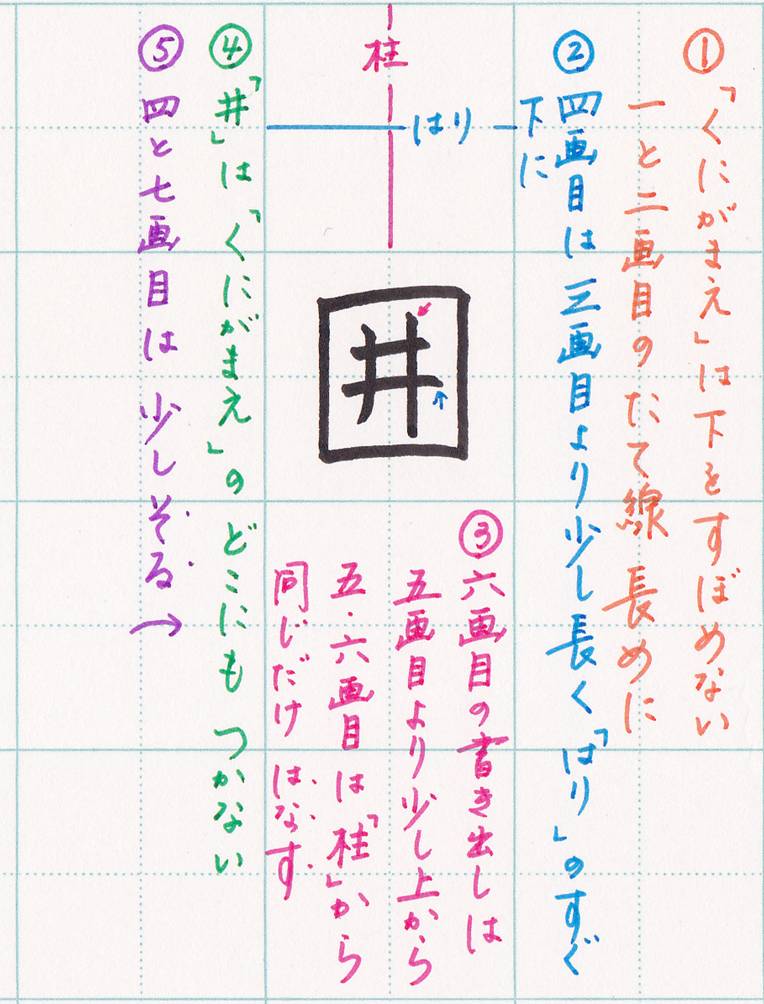 ①「くにがまえ」は下をすぼめない
一と二画目のたて線 長めに
②四画目は三画目より少し長く「はり」のすぐ
下に
はり
柱
囲
③六画目の書き出しは
五画目より少し上から
五・六画目は「柱」から
同じだけ はなす
④「井」は「くにがまえ」のどこにも つかない
⑤四と七画目は 少しそる→